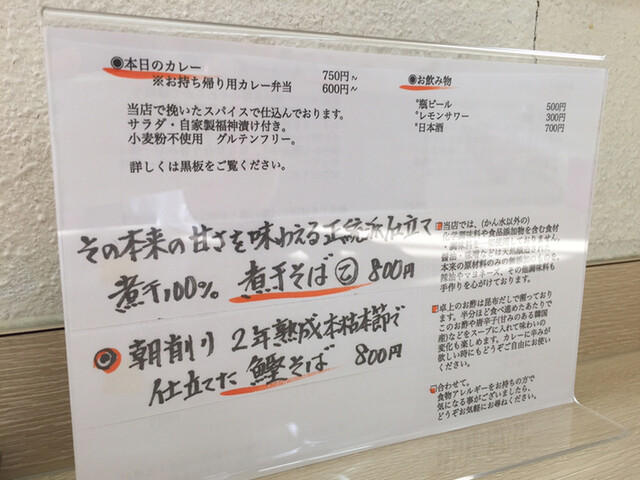 ◉本日のカレー 750円~
※お持ち帰り用カレー弁当 600円~
当店で挽いたスパイスで仕込んでおります。
サラダ・自家製福神漬け付き。
小麦粉不使用 グルテンフリー。
詳しくは黒板をご覧ください。
◉お飲み物
°瓶ビール 500円
°レモンサワー 300円
°日本酒 700円
その本来の甘さを味わえる正統派仕立て
煮干100%。煮干そば乙 800円
◉朝削り 2年熟成本枯本節で
仕立てた 鰹そば 800円
当店では、(かん水以外の)
化学調味料や食品添加物を含む食材
本来の原材料のみの
辣油やマヨネーズ、その他調味料も
手作りを心がけております。
卓上のお酢は昆布だしで割っており
ます。半分ほど食べ進めたあたりで
このお酢や唐辛子(甘みのある韓国
産)などをスープに入れて味わいの
変化も楽しめます。カレーに辛みが
欲しい時にもどうぞご自由にお使い
ください。
合わせて。
食物アレルギーをお持ちの方で
気になる事がございましたら、
どうぞお気軽にお尋ねください。